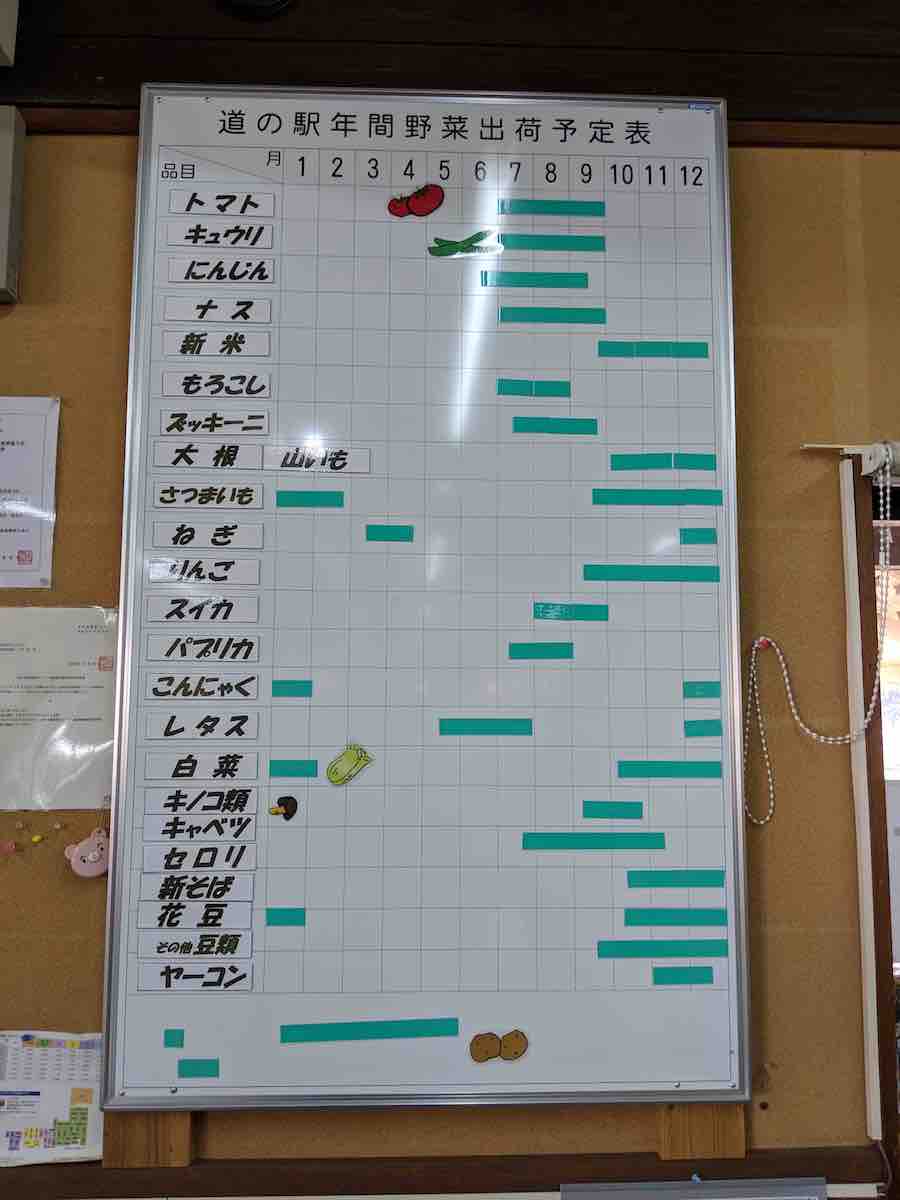 道の駅年間野菜出荷予定表
品目 月 1 2 3 4 5 6 7 8 9 10 11 12
トマト
キュウリ
にんじん
ナス
新米
もろこし
ズッキーニ
大根 山いも
さつまいも
ねぎ
りんご
スイカ
パプリカ
こんにゃく
レタス
白菜
キノコ類
キャベツ
セロリ
新そば
花豆
その他豆類
ヤーコン